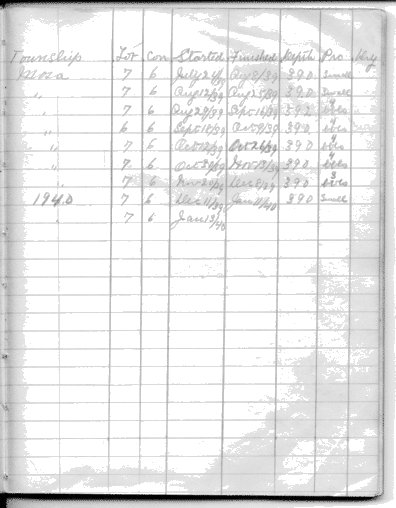 Township Lot Con Started Finished Depth Pro Dry
Mosa 7 6 July 21/39 Aug 8/39 390 Small
" 7 6 Aug 12/39 Aug 25/39 390 Small
" 7 6 Aug 29/39 Sept 16/39 392 4 bbls
" 6 6 Sept 18/39 Oct 9/39 390 4 bbls
" 7 6 Oct 12/39 Oct 26/39 390 4 bbls
" 7 6 Oct 30/39 Nov 13/39 390 4 bbls
" 7 6 Nov 20/39 Dec 8/39 390 3 bbls
1940 7 6 Dec 11/39 Jan 11/40 390 Small
" 7 6 Jan 13/40